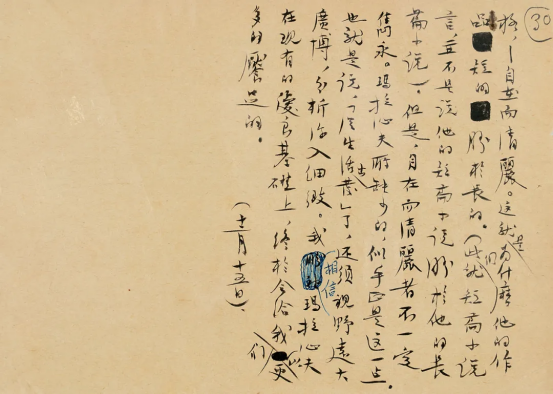 30
格——自在而清麗。这就是为什麼他的作
品短的勝於長的。（此就短篇小说
言，並不是说他的短篇小说勝於他的長
篇小说）。但是，自在而清麗者不一定
雋永。瑪拉沁夫所缺少的，似乎正是这一点。
也就是说，「从生活出发」了，还须視野遠大
廣博，分析深入细緻。我相信瑪拉沁夫
在现有的優良基礎上，終於会给我们以更
多的饜足的。
（十二月十五日）、